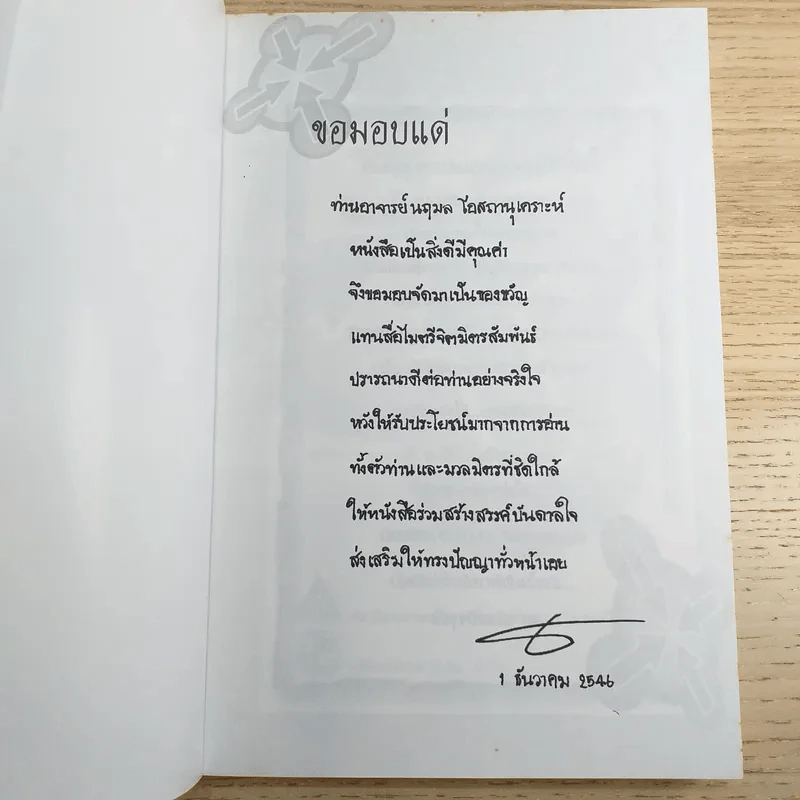 ขอมอบแด่
ท่านอาจารย์นฤมล โอสถานุเคราะห์
หนังสือเป็นสิ่งดีมีคุณค่า
จึงขอมอบจัดมาเป็นของขวัญ
แทนสื่อไมตรีจิตมิตรสัมพันธ์
ปรารถนาดีต่อท่านอย่างจริงใจ
หวังให้รับประโยชน์มากจากการอ่าน
ทั้งตัวท่านและมวลมิตรที่ชิดใกล้
ให้หนังสือร่วมสร้างสรรค์บันดาลใจ
ส่งเสริมให้ทรงปัญญาทั่วหน้าเอย
1 ธันวาคม 2546